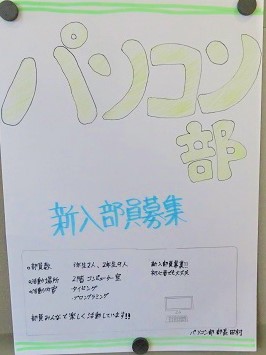 パソコン
部
新入部員募集
○部員数 1年生2人、2年生9人
○活動場所 2階 コンピューター室
○活動内容 タイピング
プログラミング
新入部員募集!!
初心者でも大丈夫
部員みんなで楽しく活動しています!!
パソコン部 部長 田村